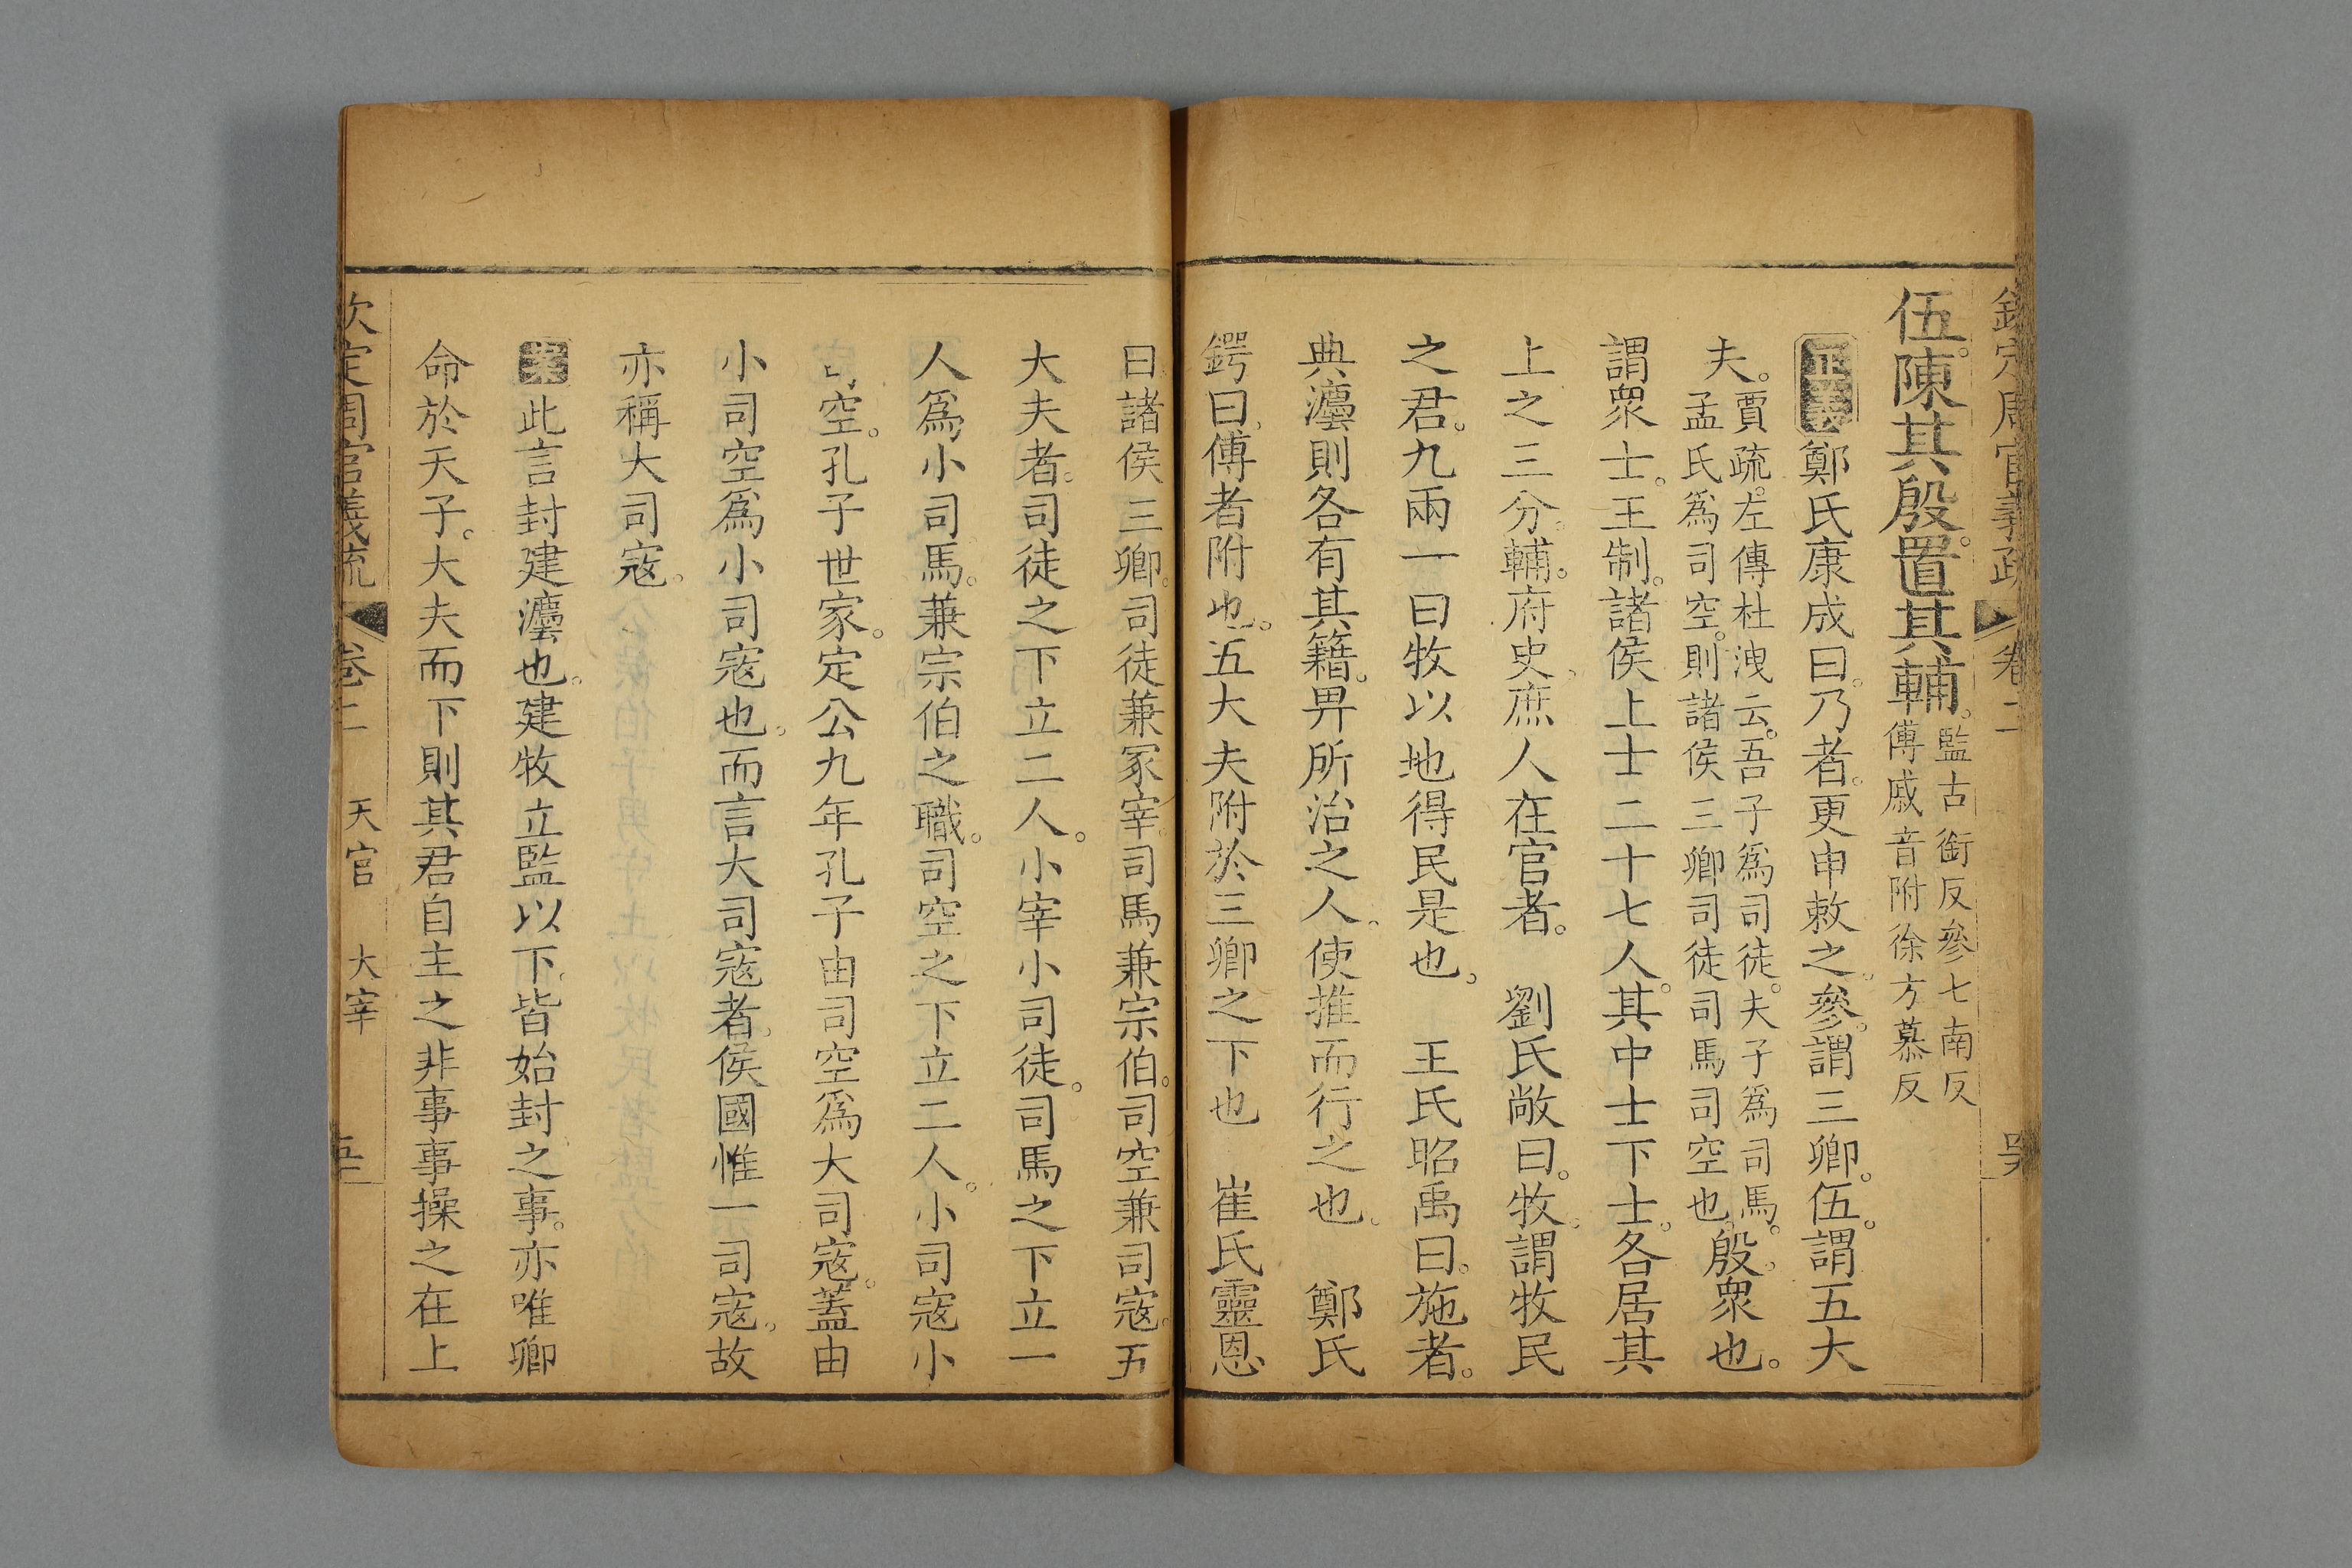 欽定周官義疏 卷二
伍。陳其殷。置其輔。監古銜反參七南反
傅戚音附徐方慕反
正義鄭氏康成曰。乃者。更申敕之。參。謂三卿。伍。謂五大
夫。賈疏。左傳杜洩云。吾子爲司徒。夫子爲司馬。
孟氏爲司空。則諸侯三卿司徒司馬司空也。殷。衆也。
謂衆士。王制。諸侯上士二十七人。其中士下士。各居其
上之三分。輔。府史。庶人在官者。 劉氏敞曰。牧。謂牧民
之君。九兩一曰牧以地得民是也。 王氏昭禹曰。施者。
典灋則各有其籍。畀所治之人。使推而行之也。 鄭氏
鍔曰。傅者附也。五大夫附於三卿之下也 崔氏靈恩
曰諸侯三卿。司徒兼冢宰。司馬兼宗伯。司空兼司寇。五
大夫者。司徒之下立二人。小宰小司徒。司馬之下立一
人爲小司馬。兼宗伯之職。司空之下立二人。小司寇小
司空。孔子世家。定公九年孔子由司空爲大司寇。蓋由
小司空爲小司寇也。而言大司寇者。侯國惟一司寇。故
亦稱大司寇。
案此言封建灋也。建牧立監以下。皆始封之事。亦唯卿
命於天子。大夫而下則其君自主之非事事操之在上
欽定周官義疏 卷二 天官 大宰